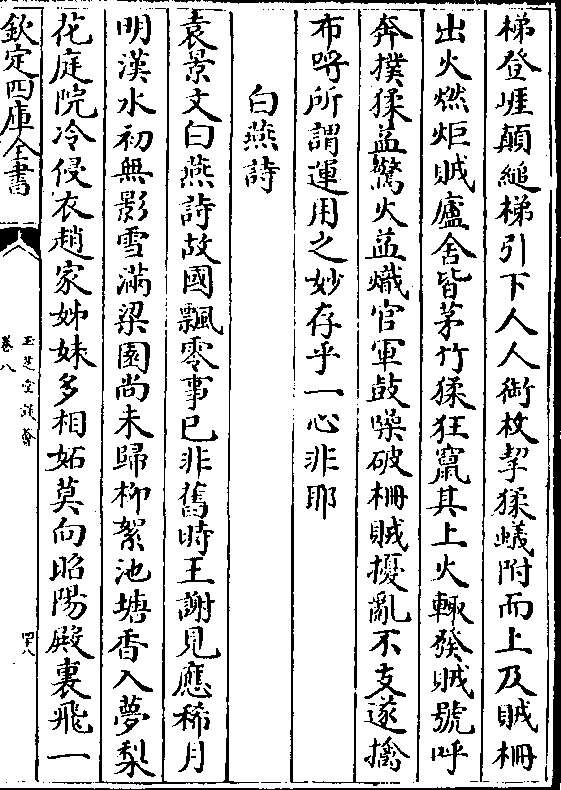 梯登崖顛縋梯引下人人銜枚挈猱蟻附而上及賊柵
出火燃炬賊廬舍皆茅竹猱狂竄其上火輒發賊號呼
奔撲猱益驚火益熾官軍鼓噪破柵賊擾亂不支遂擒
布呼所謂運用之妙存乎一心非耶
白燕詩
袁景文白燕詩故國飄零事已非舊時王謝見應稀月
明漢水初無影雪滿梁園尚未歸柳絮池塘香入夢梨
花庭院冷侵衣趙家姊妹多相妬莫向昭陽殿裏飛一
欽定四庫全書
玉芝堂談薈
卷八
四八